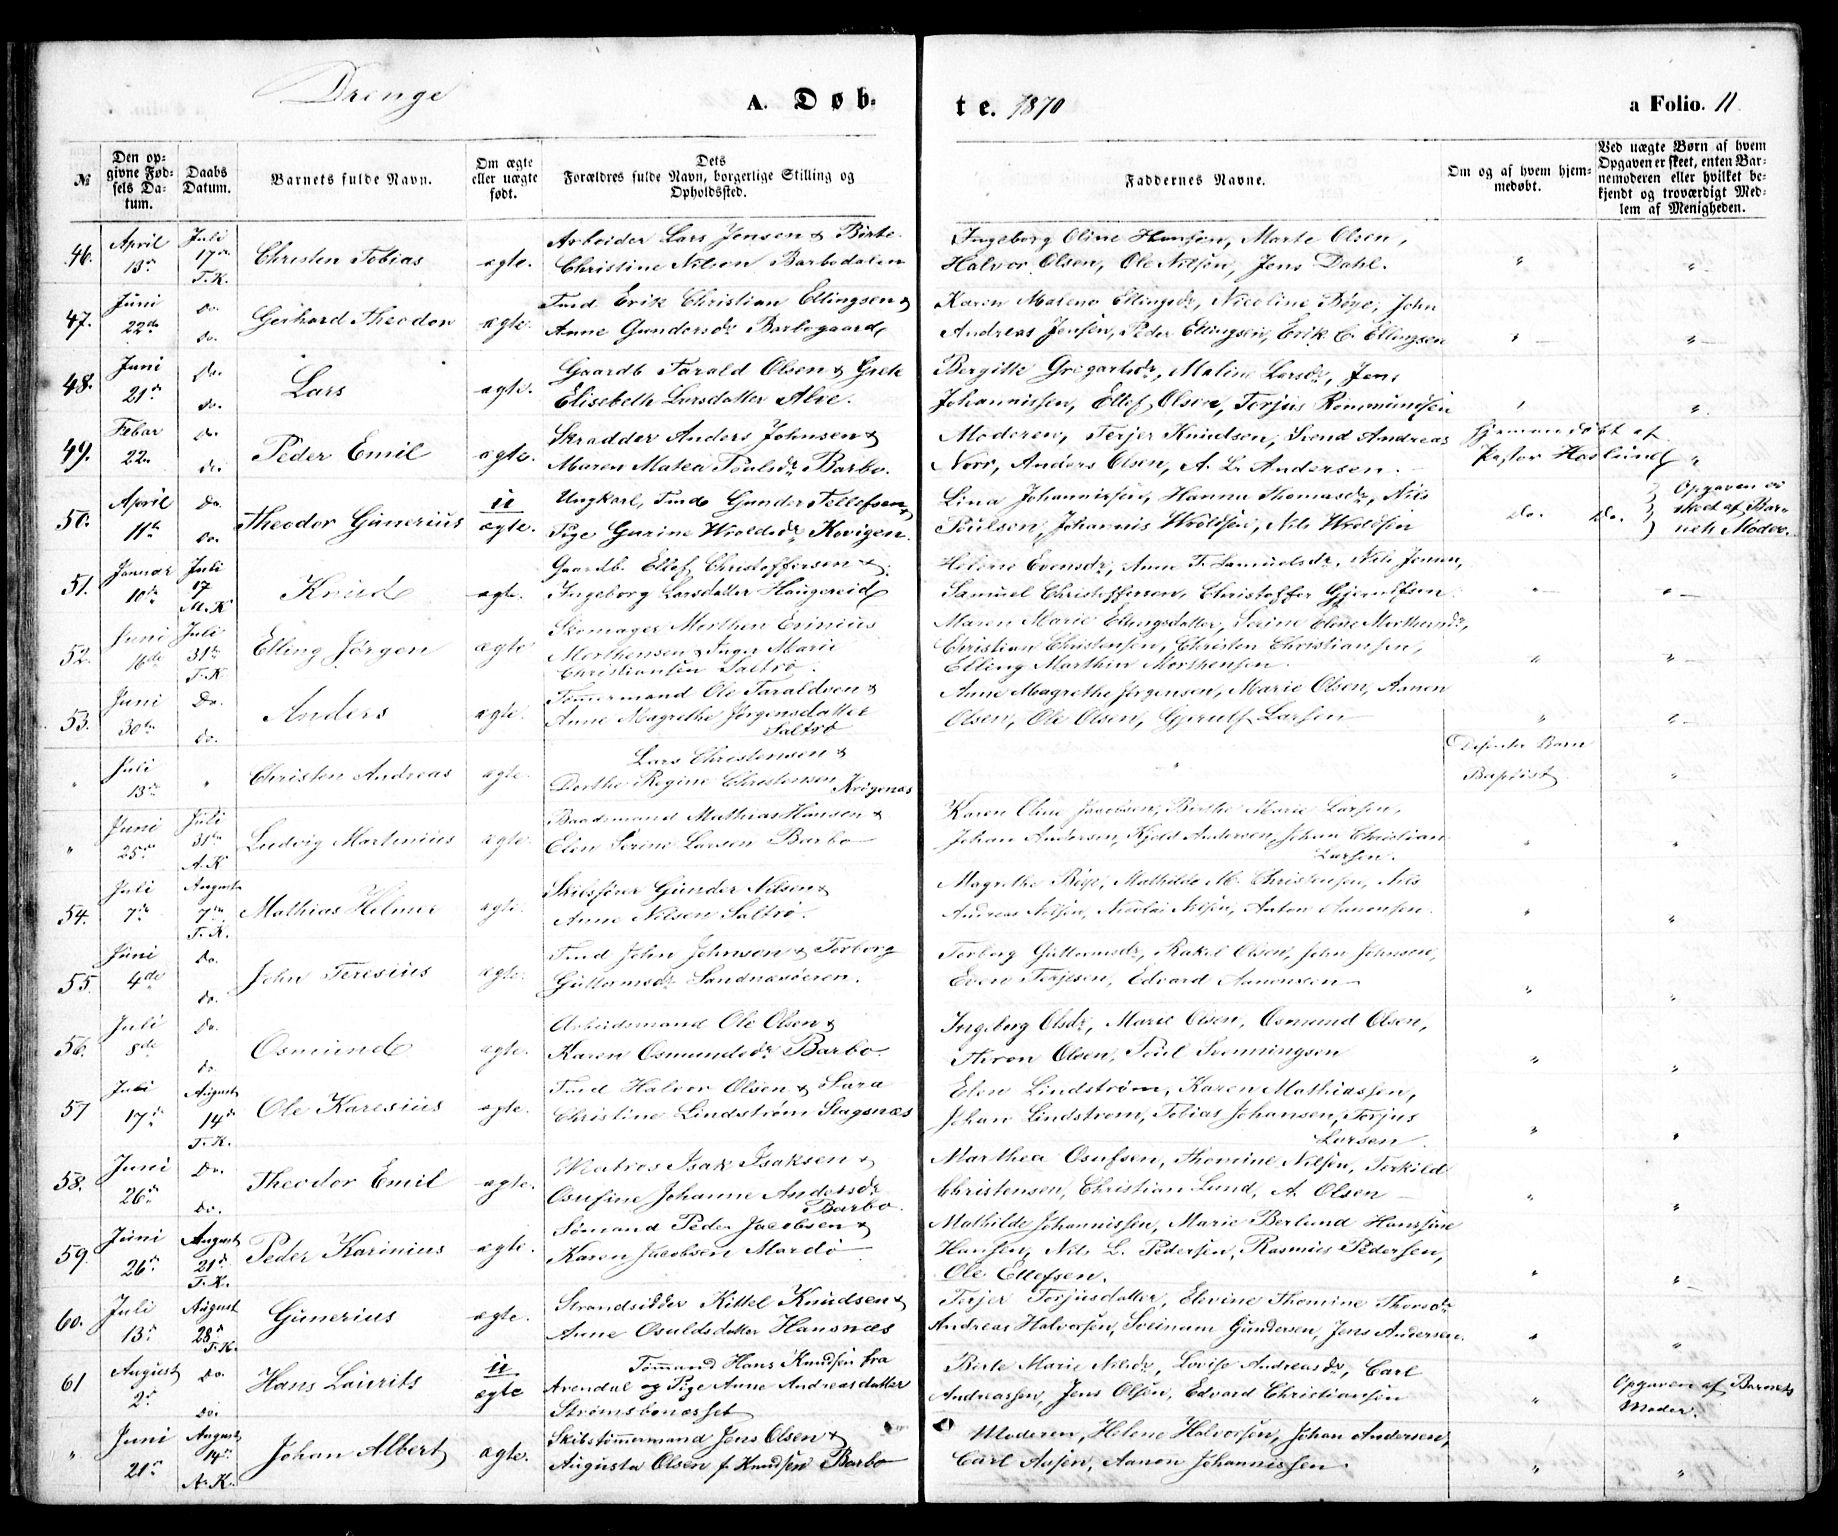 Drenge
A. Døb-
te. 1870
a Folio. 11.
№
Den opgivne Fødsels Datum.
Daabs Datum.
Barnets fulde Navn.
Om ægte eller uægte født.
Dets Forældres fulde Navn, borgerlige Stilling og Opholdssted.
Faddernes Navne.
Om og af hvem hjemmedøbt.
Ved uægte Børn af hvem Opgaven er skeet, enten Barnemoderen eller hvilket bekjendt og troværdigt Medlem af Menigheden.
46. April 13de Juli 17de T. K. Christen Tobias ægte. Arbeider Lars Jensen & Birte
Christine Nilsen Barbodalen
Ingeborg Oline Hansen, Marte Olsen,
Halvor Olsen, Ole Nilsen, Jens Dahl. " "
47. Juni 22de do. do. Gerhard Theodor ægte. Tmd Erik Christian Ellingsen &
Anne Gundersdr Barbogaard
Karen Malene Ellingsdr, Nicoline Bøye, John
Andreas Jensen, Peder Ellingsen, Erik C. Ellingsen " "
48. Juni 21de Do. do. Lars ægte. Gaardb Tarald Olsen & Grete
Elisebeth Larsdatter Alve.
Bergitte Gregartsdr, Maline Larsdr, Jens
Johannissen, Ellef Olsen, Terjus Rommundsen " "
49. Febar 22. do. do. Peder Emil ægte. Skradder Anders Johnsen &
Maren Matea Poulsdr Barbo.
Moderen, Terjer Knudsen, Svend Andreas
Noor, Anders Olsen, A. L. Andersen.
Hjemmedøbt af
Pastor Haslund "
50. April 11te Do. do. Theodor Gunerius u ægte. Ungkarl, Tmd Gunder Tellefsen &
Pige Gurine Wroldsdr Kovigen.
Lina Johannissen, Hanna Thomasdr, Nils
Poulsen, Johannis Wroldsen, Nils Wroldsen
Do. Do. Opgaven er
skeet af Bar-
nets Moder.
51. Januar 10de Juli 17 M. K Knud ægte. Gaardb. Ellef Christoffersen &
Ingeborg Larsdatter Haugereid
Helene Evensdr, Anne T. Samuelsdr, Nils Jensen,
Samuel Christoffersen, Christoffer Gjerulfsen " "
52. Juni 16de Juli 31te T. K Elling Jørgen ægte Skomager Morthen Erinius
Morthensen & Inger Marie
Christiansen Saltrø.
Maren Marie Ellingsdatter, Serine Elene Morthensdr,
Christian Christensen, Christen Christiansen,
Elling Marthin Morthensen. " "
53. Juni 30te Do. do. Anders ægte. Tømmermand Ole Taraldsen &
Anne Magrethe Jørgensdatter
Saltrø
Anne Magrethe Jørgensen, Marie Olsen, Aanon
Olsen, Ole Olsen, Gjerulf Larsen " "
" Juli 13de " Christen Andreas ægte. Lars Christensen &
Dorthe Regine Christensen Krøgenes
" Disenter Barn
Baptist "
" Juni 25de Juli 31te A. K Ludvig Martinius ægte Baadsmand Mathias Hansen &
Elen Serine Larsen Barbo
Karen Oline Jacobsen, Birthe Marie Larsen,
Johan Andersen, Kjeld Andersen, Johan Christian
Larsen. " "
54. Juli 7de Augusti 7de T. K. Mathias Helmer ægte. Skibsfører Gunder Nilsen &
Anne Nilsen Saltrø.
Magrethe Bøye, Mathilde M. Christensen, Nils
Andreas Nilsen, Nicolai Nilsen, Anton Aanonsen. " "
55. Juni 4de Do. do. John Teresius ægte. Tmd John Johnsen & Torborg
Guttormsdr Sandnæsøeren.
Torborg Guttormsdr, Rakel Olsen, John Johnsen,
Even Terjesen, Edvard Aanonsen " "
56. Juli 8de Do. do Osmund ægte. Arbeidsmand Ole Olsen &
Karen Osmundsdr Barbo.
Ingeborg Olsdr, Marie Olsen, Osmund Olsen,
Aron Olsen, Poul Svenningsen " "
57 Juli 17de August 14de T. K. Ole Karesius ægte. Tmd Halvor Olsen & Sara
Christine Lindstrøm Slagsnæs
Elen Lindstrøm, Karen Mathiassen,
Johan Lindstrøm, Tobias Johansen, Terjus
Larsen. " "
58. Juni 26de Do. Do. Theodor Emil ægte. Matros Isak Isaksen &
Osufine Johanne Andersdr
Barbo.
Marthea Osufsen, Thomine Nilsen, Terkild
Christensen, Christian Lund, A. Olsen " "
59. Juni 26de August 21de T. K. Peder Karinius ægte. Sømand Peder Jacobsen &
Karen Jacobsen Mardø
Mathilde Johannissen, Marie Berlund Hanssine
Hansen, Nils L. Pedersen, Rasmus Pedersen,
Ole Ellefsen. " "
60. Juli 13de August 28de T. K. Gunerius ægte. Strandsidder Kittel Knudsen &
Anne Osuldsdatter Hansnæs
Terjer Terjusdatter, Elevine Thomine Thorsdr
Andreas Halvorsen, Sveinam Gundersen, Jens Andersen. " "
61 August 2de Do. Do. Hans Laurits u ægte Tømmand Hans Knudsen fra
Arendal og Pige Anne Andreasdatter
Strømsbonesset
Berte Marie Nilsdr, Lovise Andreasdr, Carl
Andreassen, Jens Olsen, Edvard Christiansen "
Opgaven af Barnets
Moder.
" Juni 21de August 14de A. K. Johan Albert ægte. Skibstømmermand Jens Olsen &
Augusta Olsen f. Knudsen Barbo
Moderen, Helene Halvorsen, Johan Andersen,
Carl Ausen, Aanon Johannissen. " "